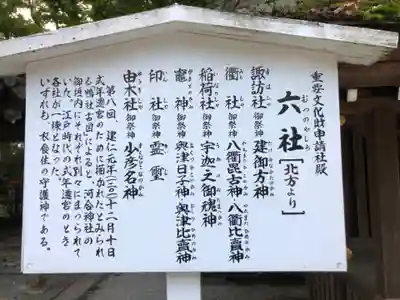 重要文化財申請社殿
六社［北方より］
むつのやしろ
諏訪社 御祭神 建御方神
衢社 御祭神 八衢毘古神・八衢比賣神
稲荷社 御祭神 宇迦之御魂神
竈神 御祭神 奥津日子神 奥津比賣神
印社 霊璽
由木社 御祭神 少彦名神
第八回、建仁元年（一二〇一）十二月十日
式年遷宮のために描かれたとみられ
る鴨社古図によると河合神社の
御垣内にそれぞれ別々にまつられて
いた。江戸時代の式年遷宮のとき
各社が一棟となった。
いずれも、衣食住の守護神である。